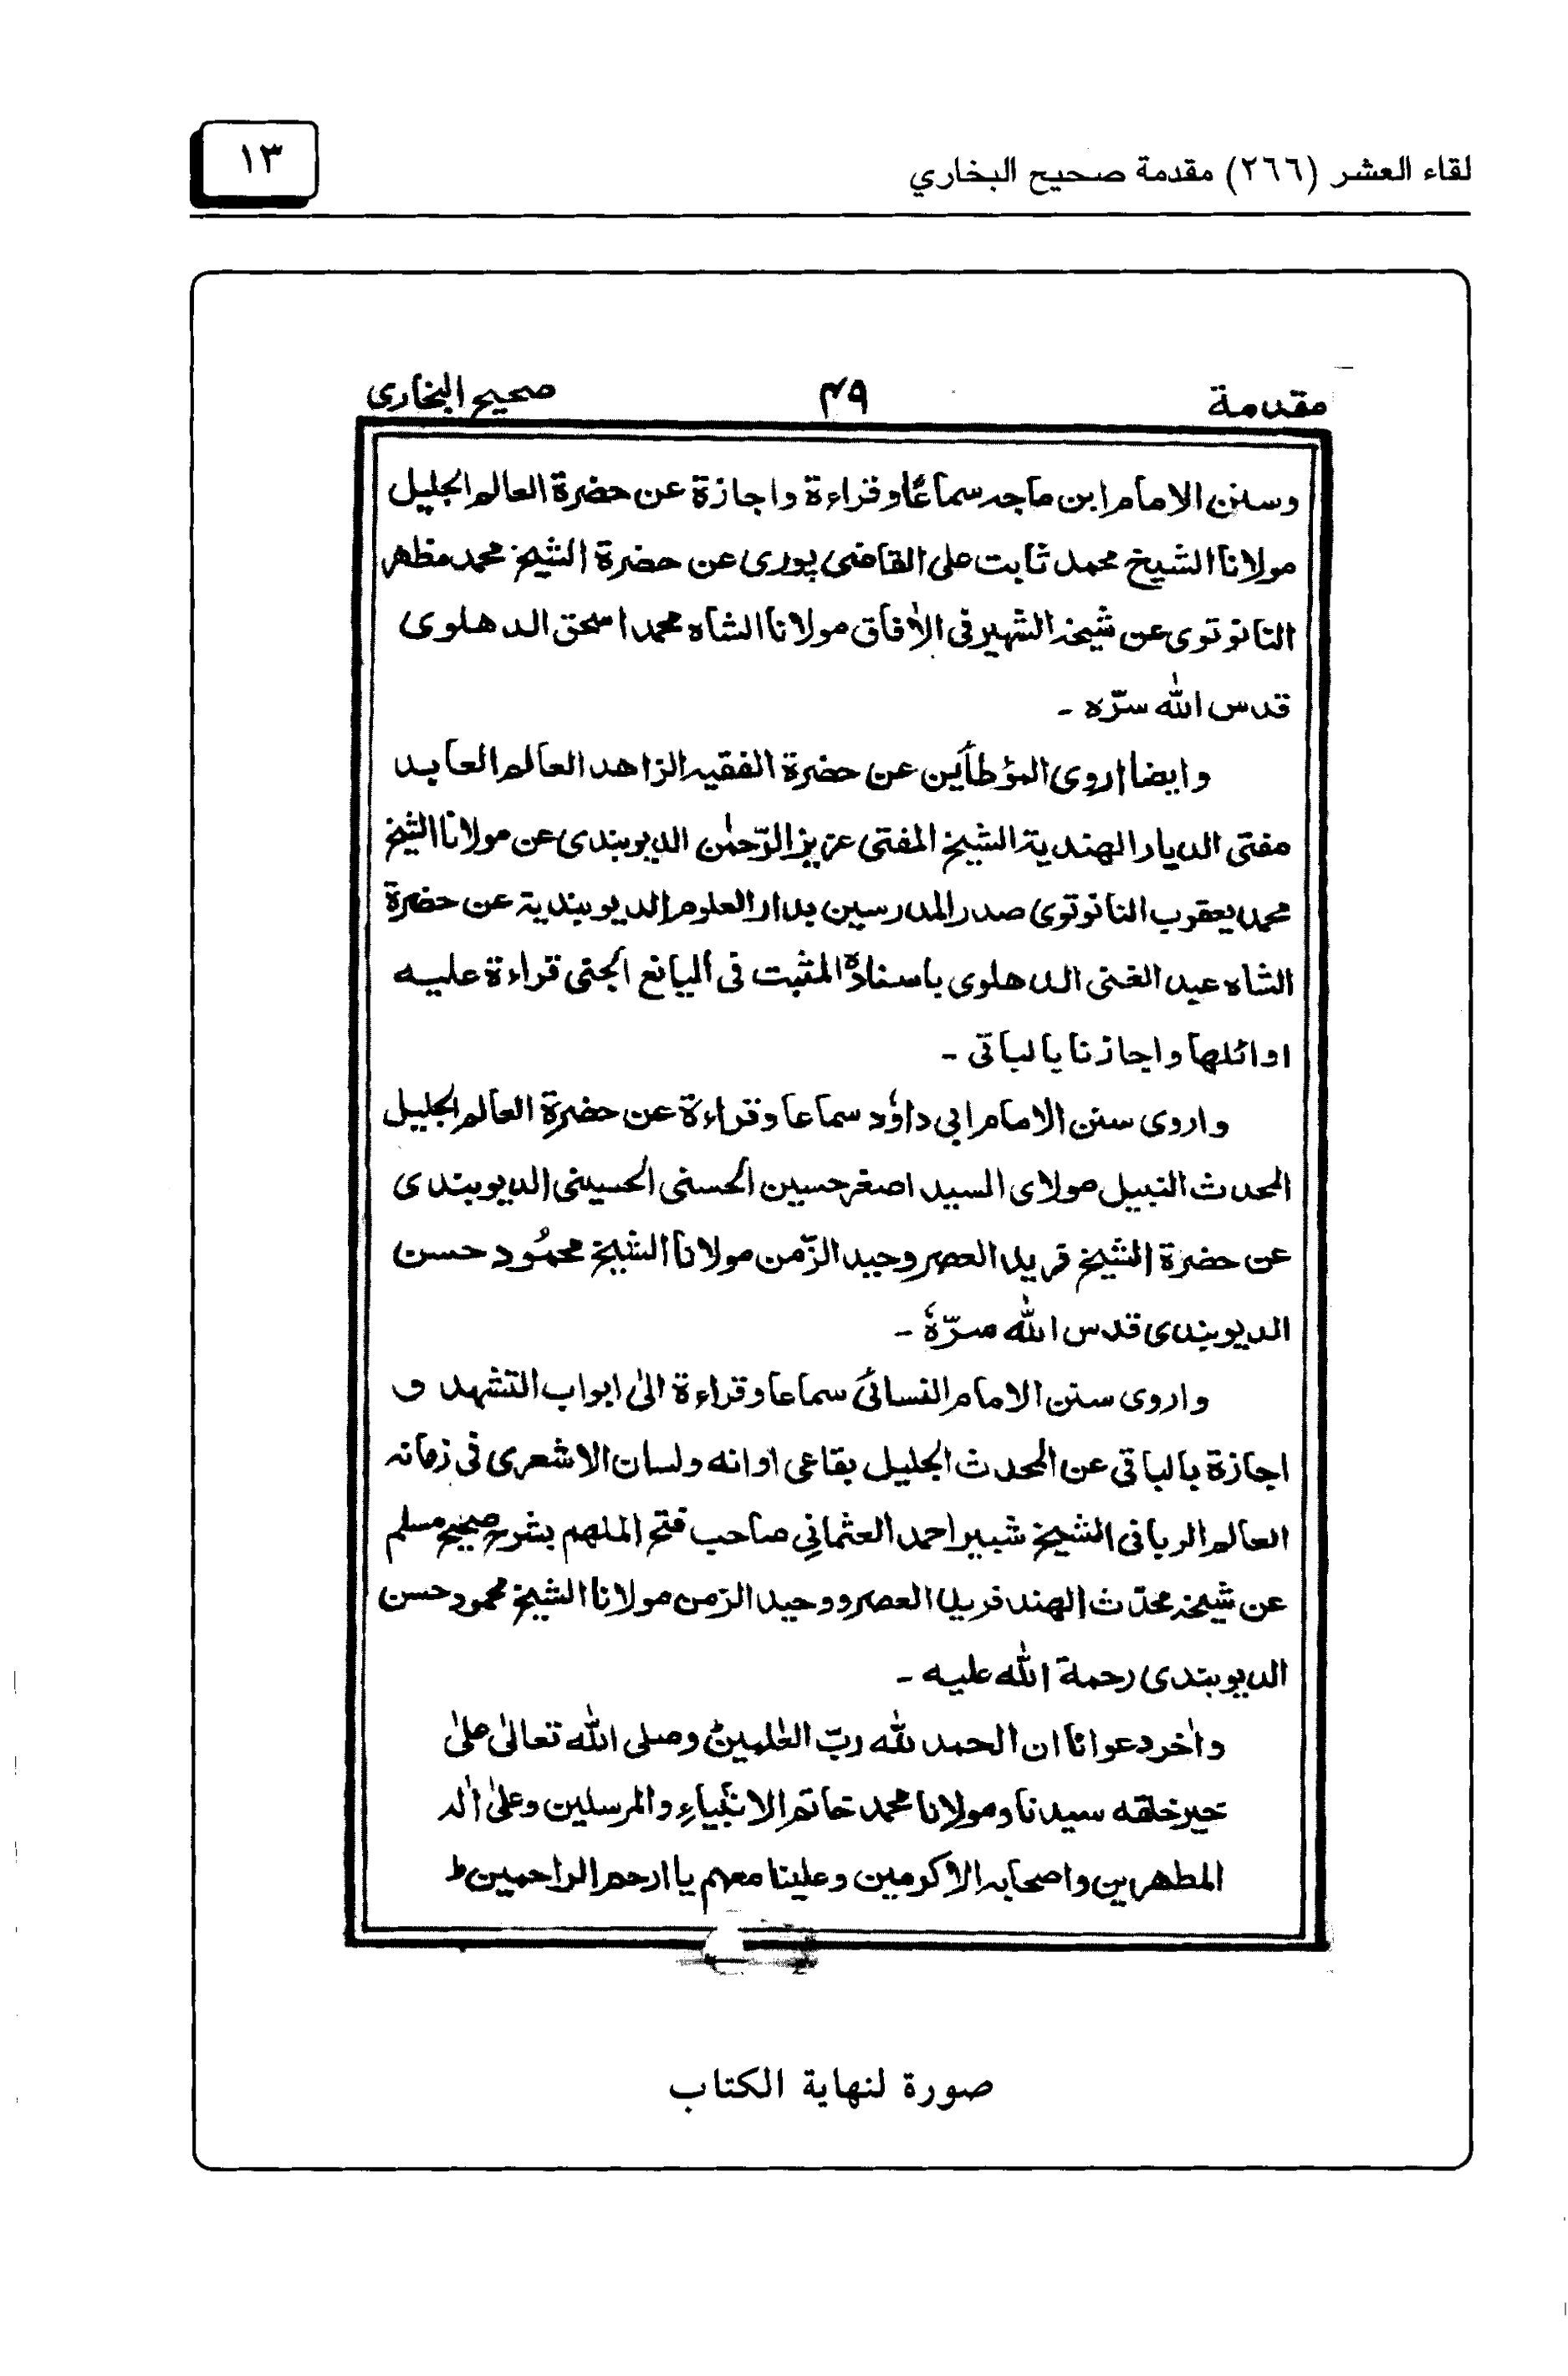 لقاء العشر (٢٦٦) مقدمة صحيح البخاري
١٣
مقدمة
۴۹
صحيح البخارى
وسنن الامام ابن ماجه سماعًا وقراءة واجازة عن حضرة العالم الجليل
مولانا الشيخ محمد ثابت على القاضى پورى عن حضرة الشيخ محمد مظهر
النانوتوى عن شيخه الشهير فى الاٰفاق مولانا الشاه محمد اسحٰق الدهلوى
قدس الله سرّه -
وايضا اروى المؤطأين عن حضرة الفقيه الزاهد العالم العابد
مفتى الديار الهندية الشيخ المفتى عزيز الرّحمٰن الديوبندى عن مولانا الشيخ
محمد يعقوب النانوتوى صدر المدرسين بدار العلوم الديوبندية عن حضرة
الشاه عبد الغنى الدهلوى باسنادهٖ المثبت فى اليانع الجنى قراءة عليه
اوائلها واجازنا بالباقى -
واروى سنن الامام ابى داؤد سماعا وقراءة عن حضرة العالم الجليل
المحدث النبيل مولاى السيد اصغر حسين الحسنى الحسينى الديوبندى
عن حضرة الشيخ فريد العصر وحيد الزّمن مولانا الشيخ محمُود حسن
الديوبندى قدس الله سرّهٗ -
واروى سنن الامام النسائى سماعا وقراءة الىٰ ابواب التشهد و
اجازة بالباقى عن المحدث الجليل بقاعى اوانه ولسان الاشعرى فى زمانه
العالم الربانى الشيخ شبير احمد العثمانى صاحب فتح الملهم بشرح صحيح مسلم
عن شيخه محدّث الهند فريد العصر ووحيد الزمن مولانا الشيخ محمود حسن
الديوبندى رحمة الله عليه -
واٰخر دعوانا ان الحمد لله ربّ العٰلمين وصلى الله تعالىٰ علىٰ
خير خلقه سيدنا ومولانا محمد خاتم الانبياء والمرسلين وعلىٰ اٰله
المطهرين واصحابه الاكرمين وعلينا معهم يا ارحم الراحمين ط
صورة لنهاية الكتاب